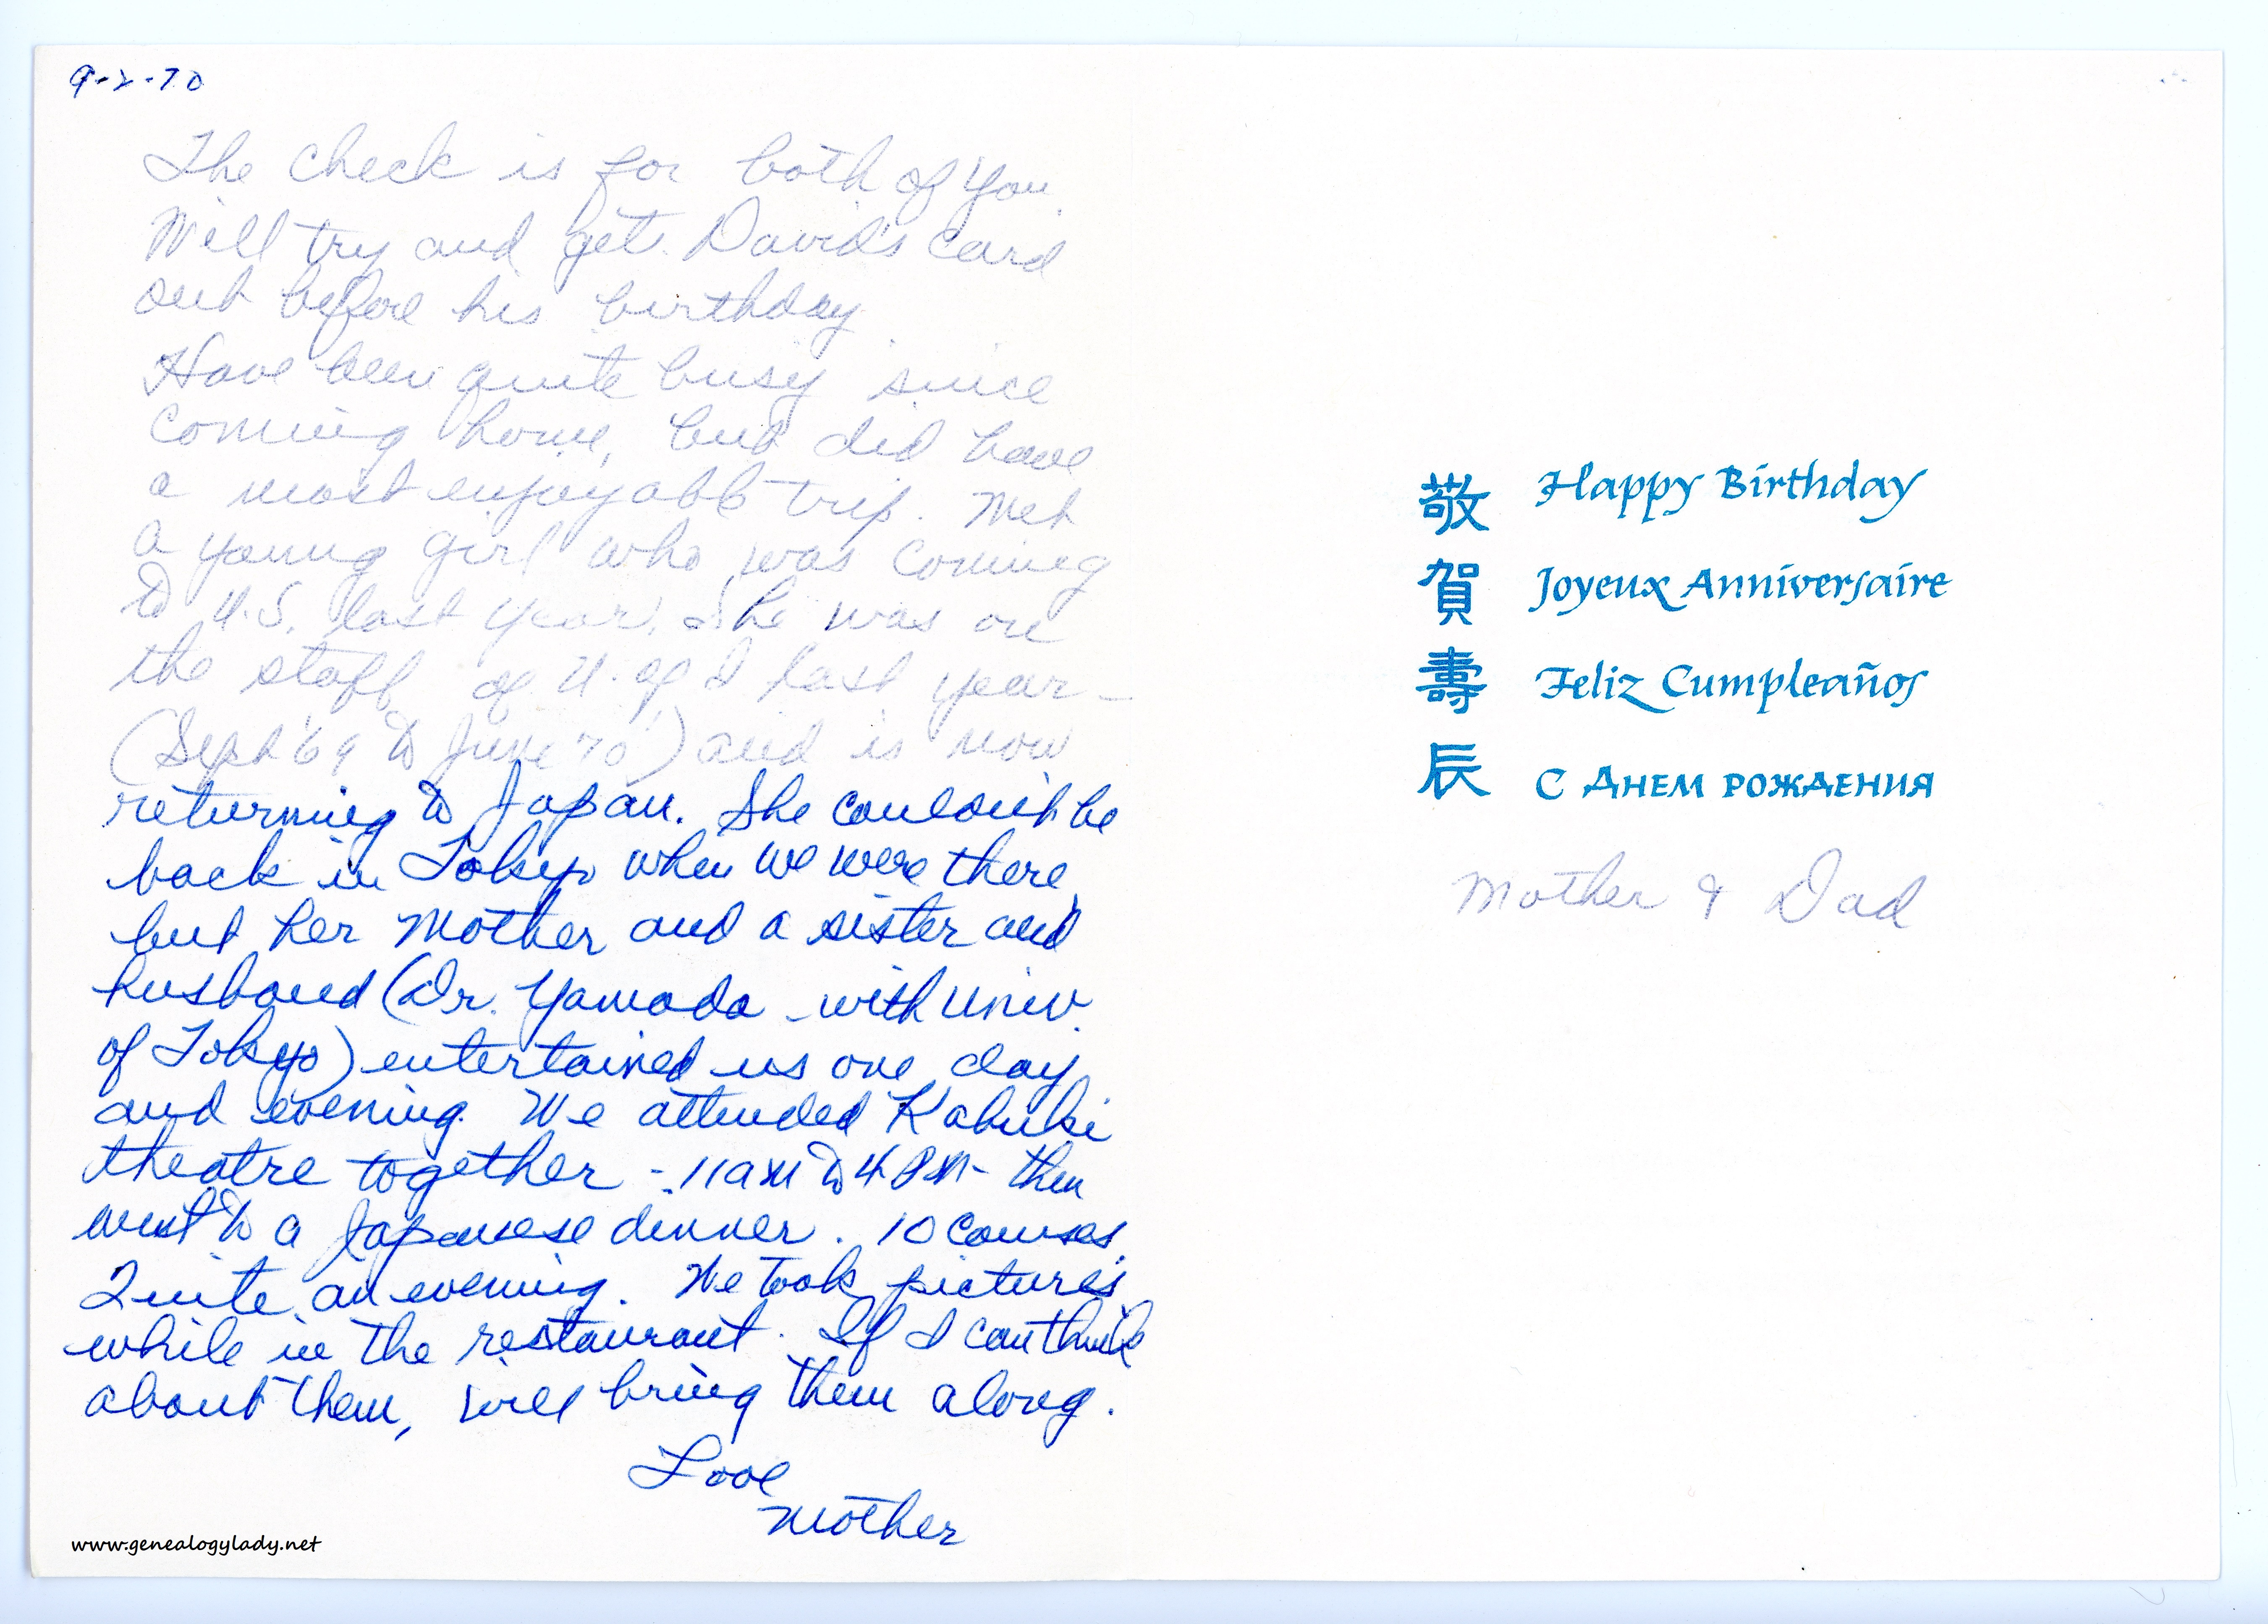 9-2-70
The check is for both of you.
Will try and get David's card
out before his birthday
Have been quite busy since
coming home, but did have
a most enjoyable trip. Met
a young girl who was coming
to U.S. last year. She was on
the staff of U. of I last year -
(Sept '69 to June '70) and is now
returning to Japan. She couldn't be
back in Tokyo when we were there
but her Mother and a sister and
husband (Dr. Yamada - with Univ.
of Tokyo) entertained us one day
and evening. We attended Kabuki
theatre together - 11 am to 4 PM - then
went to a Japanese dinner. 10 courses.
Quite an evening. We took pictures
while in the restaurant. If I can think
about them, will bring them along.
Love
Mother
www.genealogylady.net
敬 Happy Birthday
賀 Joyeux Anniversaire
壽 Feliz Cumpleaños
辰 С Днем рождения
Mother & Dad